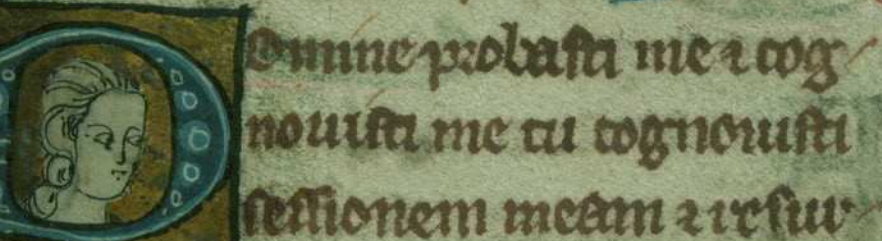 Domine probasti me ⁊ cog
nouisti me tu cognouisti
sessionem meam ⁊ resur